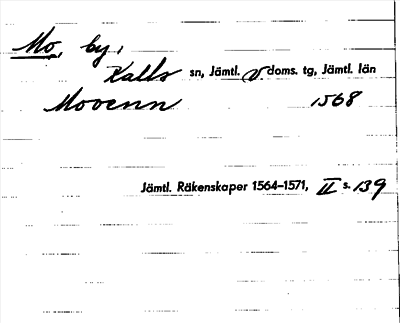 Mo, by,
Kalls sn, Jämtl. v doms. tg, Jämtl. län
Movenn 1568
Jämtl. Räkenskaper 1564–1571, II s. 139